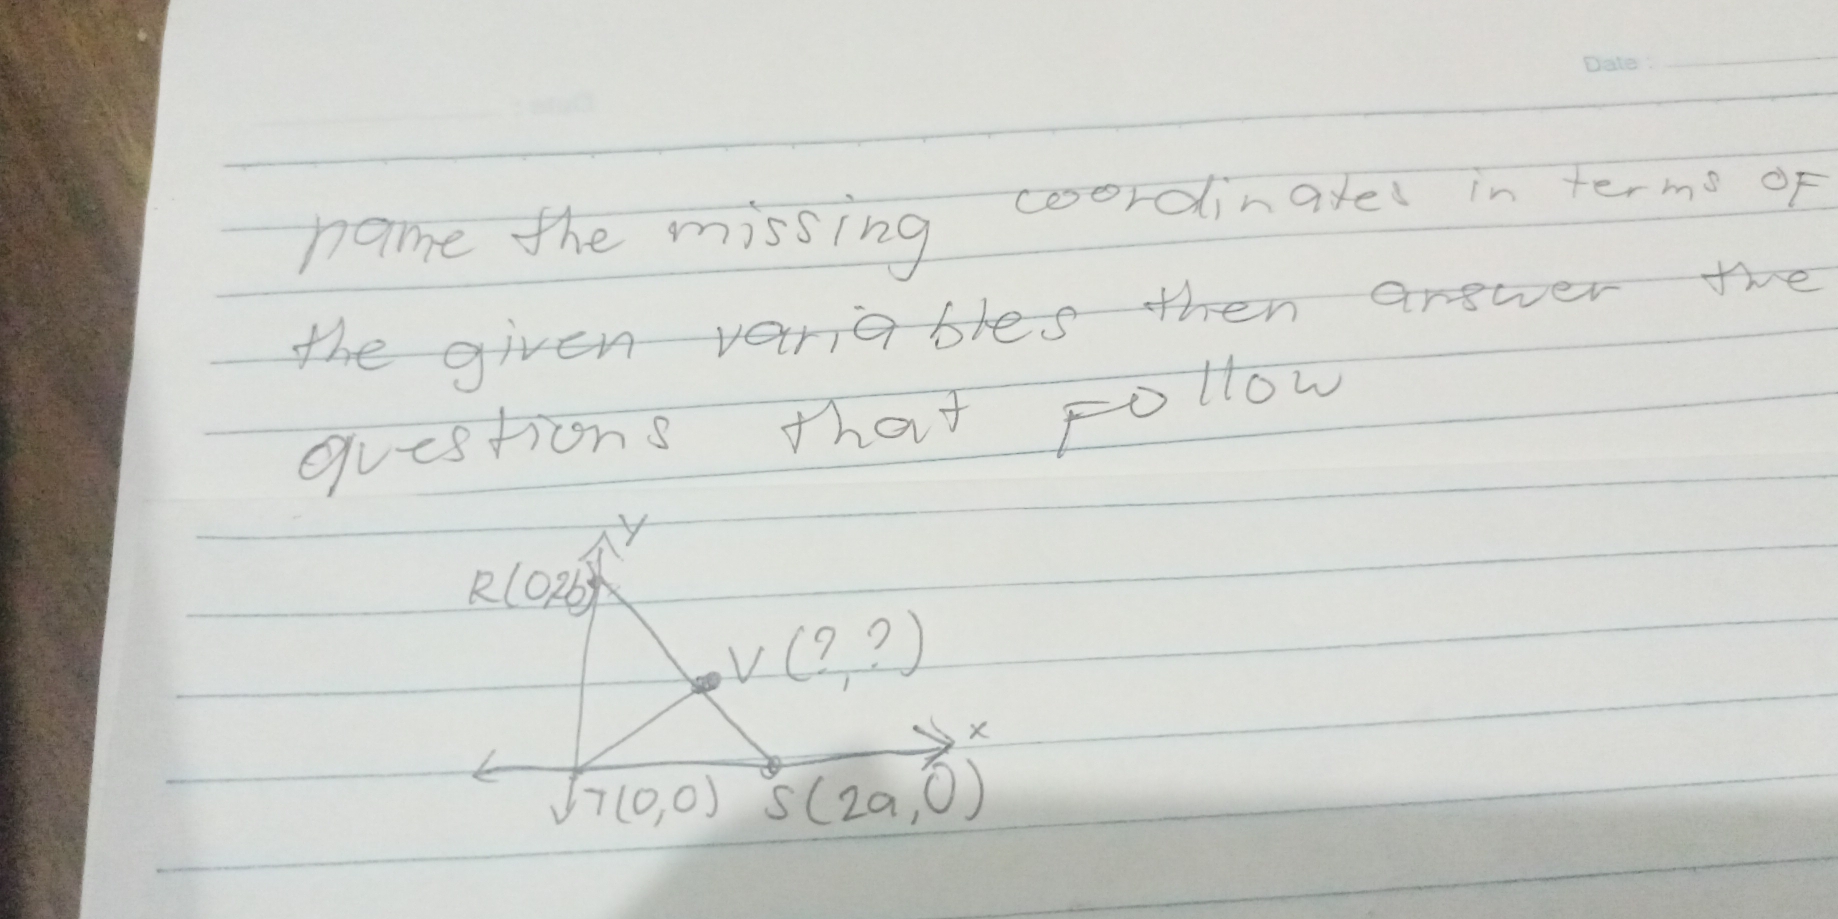 Date :
name the missing coordinates in terms of
the given variables then answer the
questions that follow
y
R(0,2b)
V (?,?)
x
T(0,0) S(2a,0)